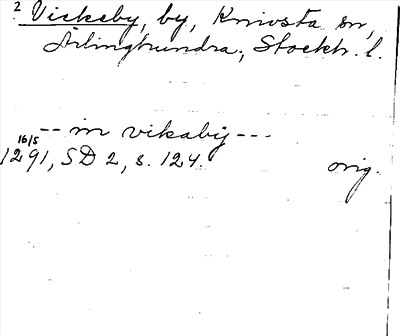 2 Vickeby, by, Knivsta sn,
Ärlinghundra, Stockh. l.
-- in vikaby ---
16/5
1291, SD 2, s. 124. orig.